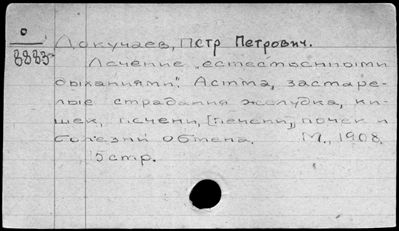 0
8883
Докучаев, Петр Петрович.
Лечение "естественными
дыханиями". Астма, застаре-
лые страдания желудка, ки-
шек, печени, [печени], почек и
болезни обмена. М., 1908.
5 стр.